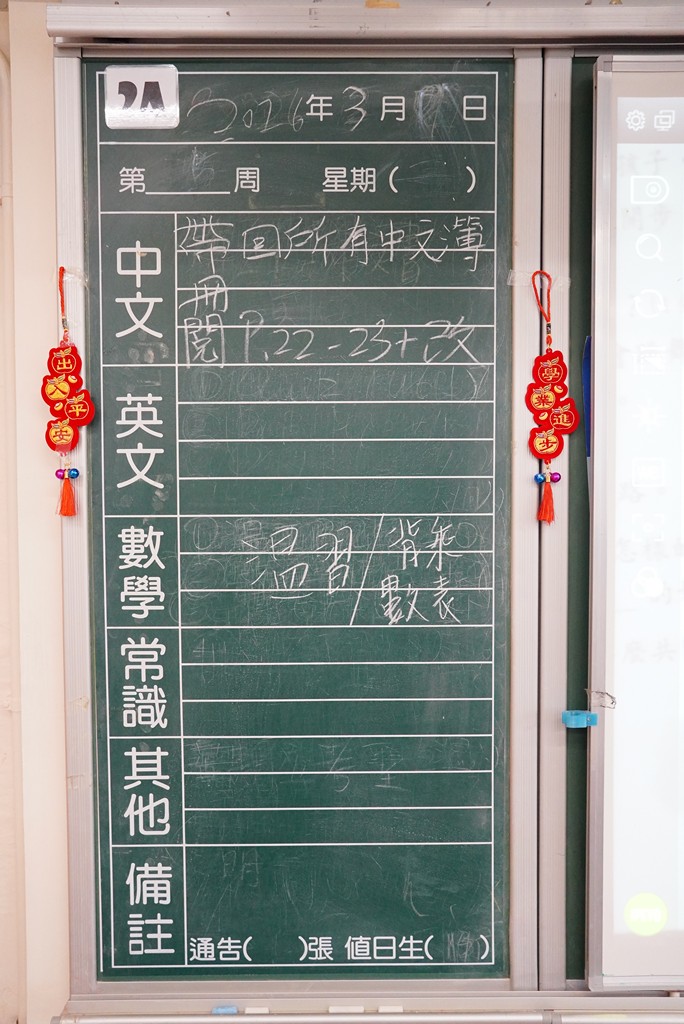 2A
2026年3月 日
第 周 星期( )
中文
帶回所有中文簿
冊
閱P.22-23+改
英文
數學
溫習/背乘
數表
常識
其他
備註
通告( )張 值日生( )
出入平安
學業進步